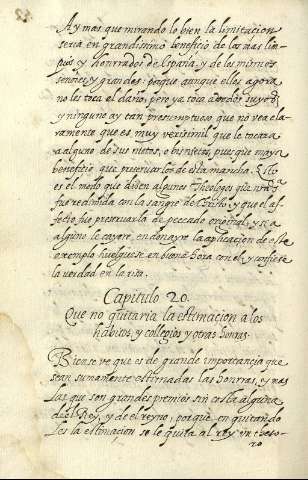 Ay mas que mirando lo bien la limitacion
seria en grandissimo beneficio de los mas lim
pios y honrrados de España, y de los mismos
señores, y grandes. porque aunque ellos agora
no les toca el daño, pero ya toca a deudos suyos
y ninguno ay tan presumptuoso que no vea cla
ramente que es muy verisimil que le tocara
a alguno de sus nietos, o bisnietos, pues que mayor
beneficio que preservarlos de esta mancha. Esto
es el modo que dicen algunos Theologos que
fue redimida con la sangre de Christo, y que el af
fecto fue preservarla de peccado original, y si a
alguno le cayere en donayre la aplicacion de este
exemplo huelguese en buena hora con el y confiese
la verdad en la risa.
Capitulo 20.
Que no quitaria la estimacion a los
habitos, y collegios y otras honras.
Bien se ve que es de grande importancia que
sean sumamente estimadas las honrras, y mas
las que son grandes premios sin costa alguna
de el Rey, y de el reyno, porque en quitando
les la estimacion se le quita al rey un theso-
ro